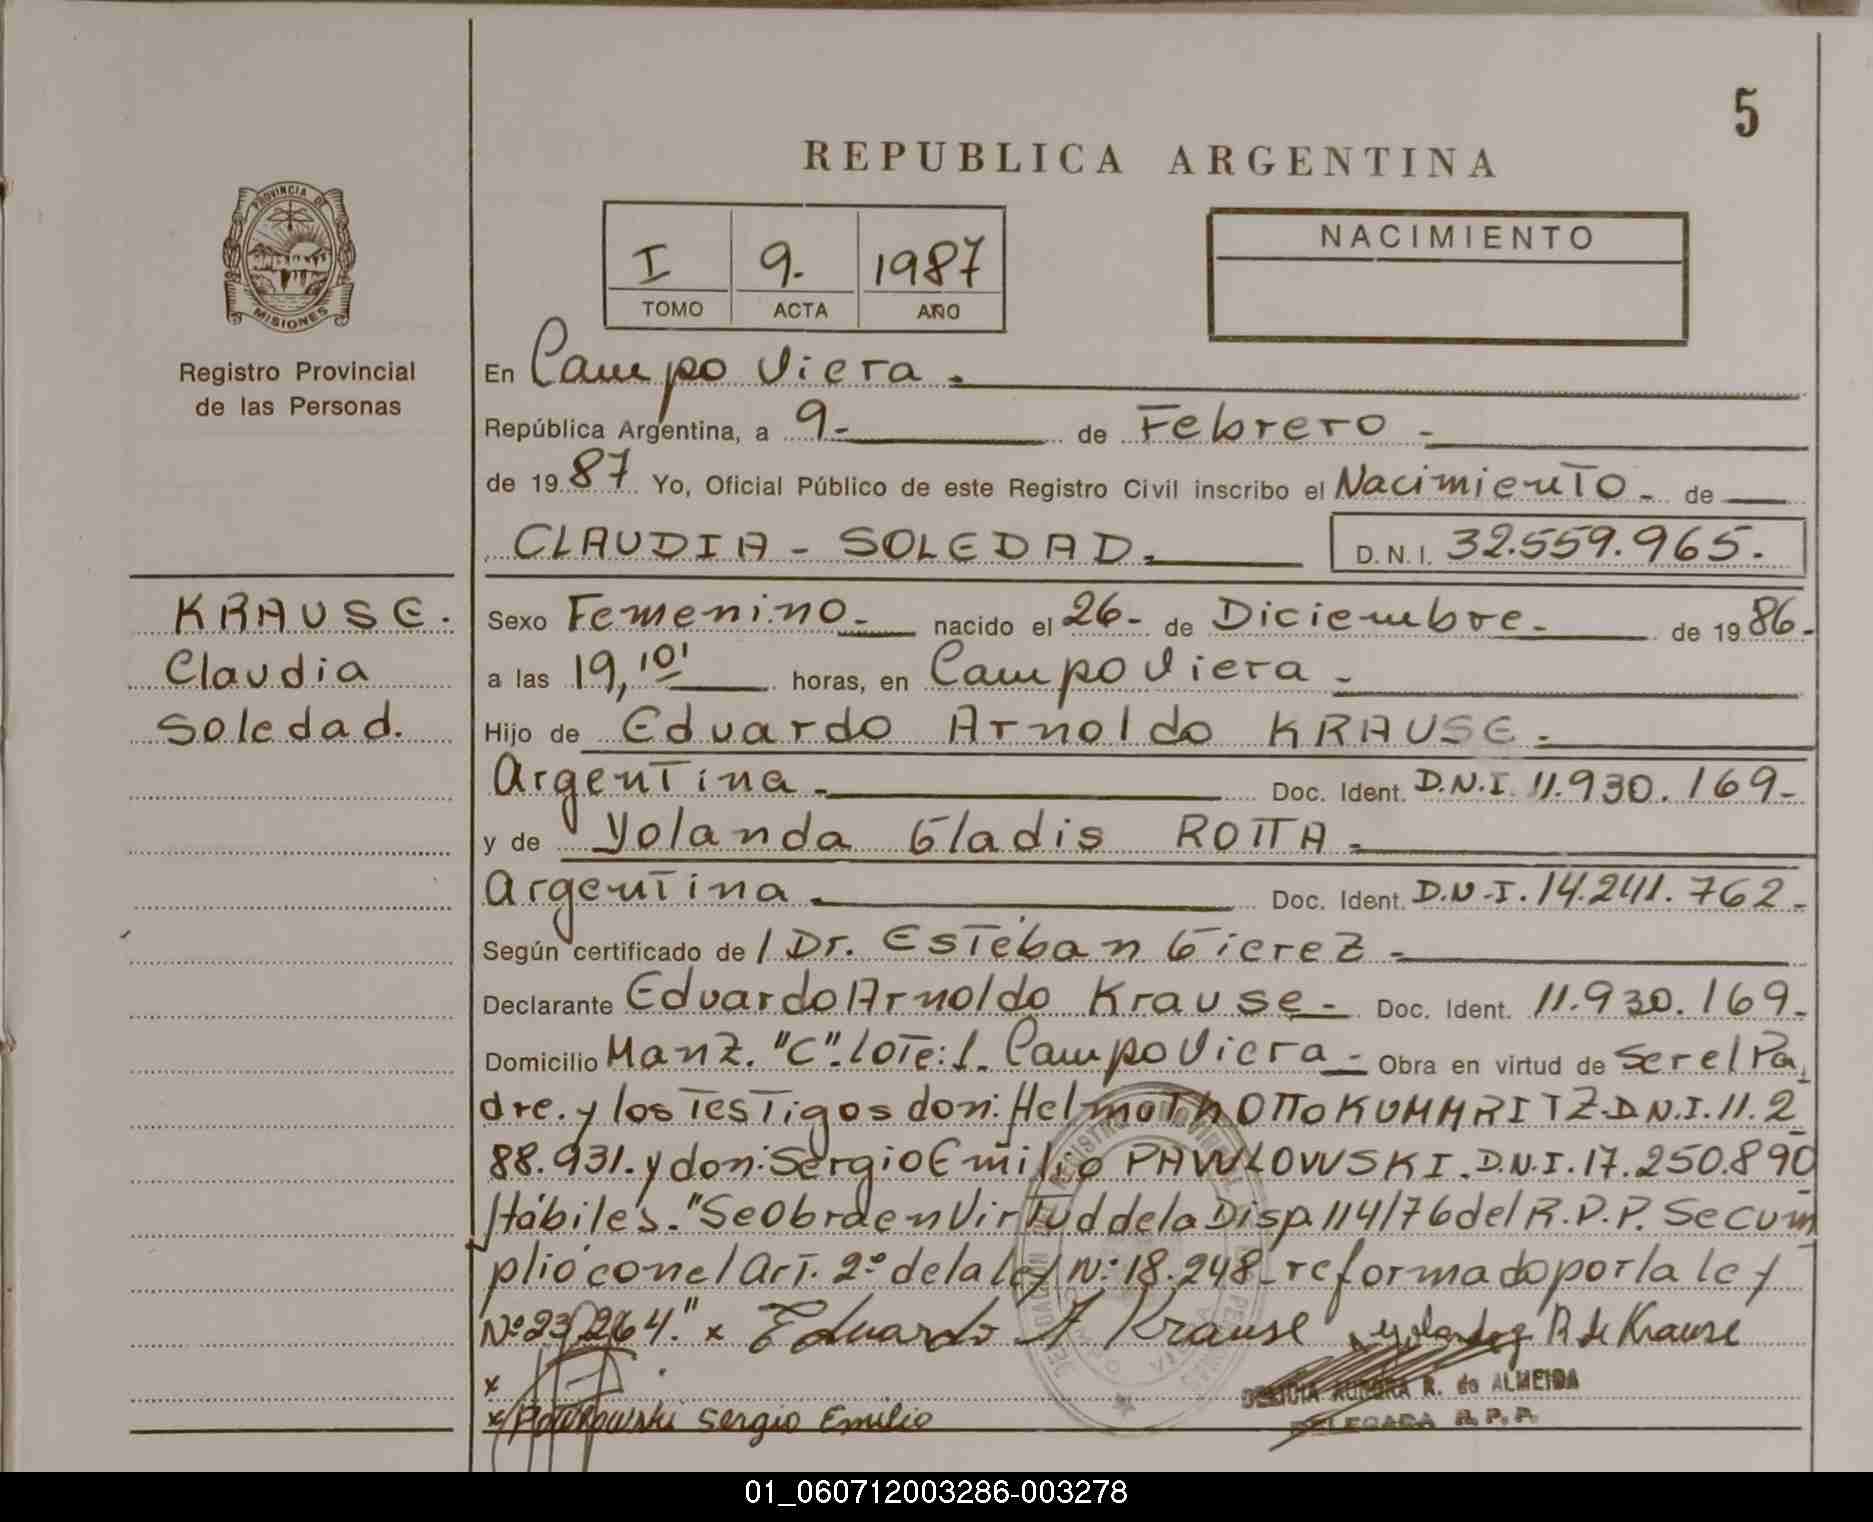 5
REPUBLICA ARGENTINA
PROVINCIA DE
MISIONES
Registro Provincial
de las Personas
I 9. 1987
TOMO ACTA AÑO
NACIMIENTO
En Campo Viera.
República Argentina, a 9- de Febrero -
de 1987 Yo, Oficial Público de este Registro Civil inscribo el Nacimiento - de
CLAUDIA - SOLEDAD. D.N.I. 32.559.965.
KRAUSE.
Claudia
Soledad.
Sexo Femenino- nacido el 26- de Diciembre - de 1986-
a las 19,10' horas, en Campo Viera -
Hijo de Eduardo Arnoldo KRAUSE -
Argentina - Doc. Ident. D.N.I. 11.930.169-
y de Yolanda Gladis ROTTA -
Argentina - Doc. Ident. D.N.I. 14.241.762-
Según certificado de / Dr. Esteban Gierez -
Declarante Eduardo Arnoldo Krause - Doc. Ident. 11.930.169-
Domicilio Manz. "C". lote: 1. Campo Viera - Obra en virtud de Ser el Pa
dre. y los Testigos don: Helmoth OTTO KUMMRITZ. D.N.I. 11.2
88.931. y don: Sergio Emilio PAWLOWSKI. D.N.I. 17.250.890
Hábiles. "Se Obra en Virtud de la Disp. 114/76 del R.P.P. Se cum
plió con el Art. 2º de la ley Nº 18.248 - reformado por la ley
Nº 23.264." x Eduardo A Krause Yolanda R de Krause
x
x Pawlowski Sergio Emilio
AURORA R. de ALMEIDA
DELEGADA R.P.P.
01_060712003286-003278